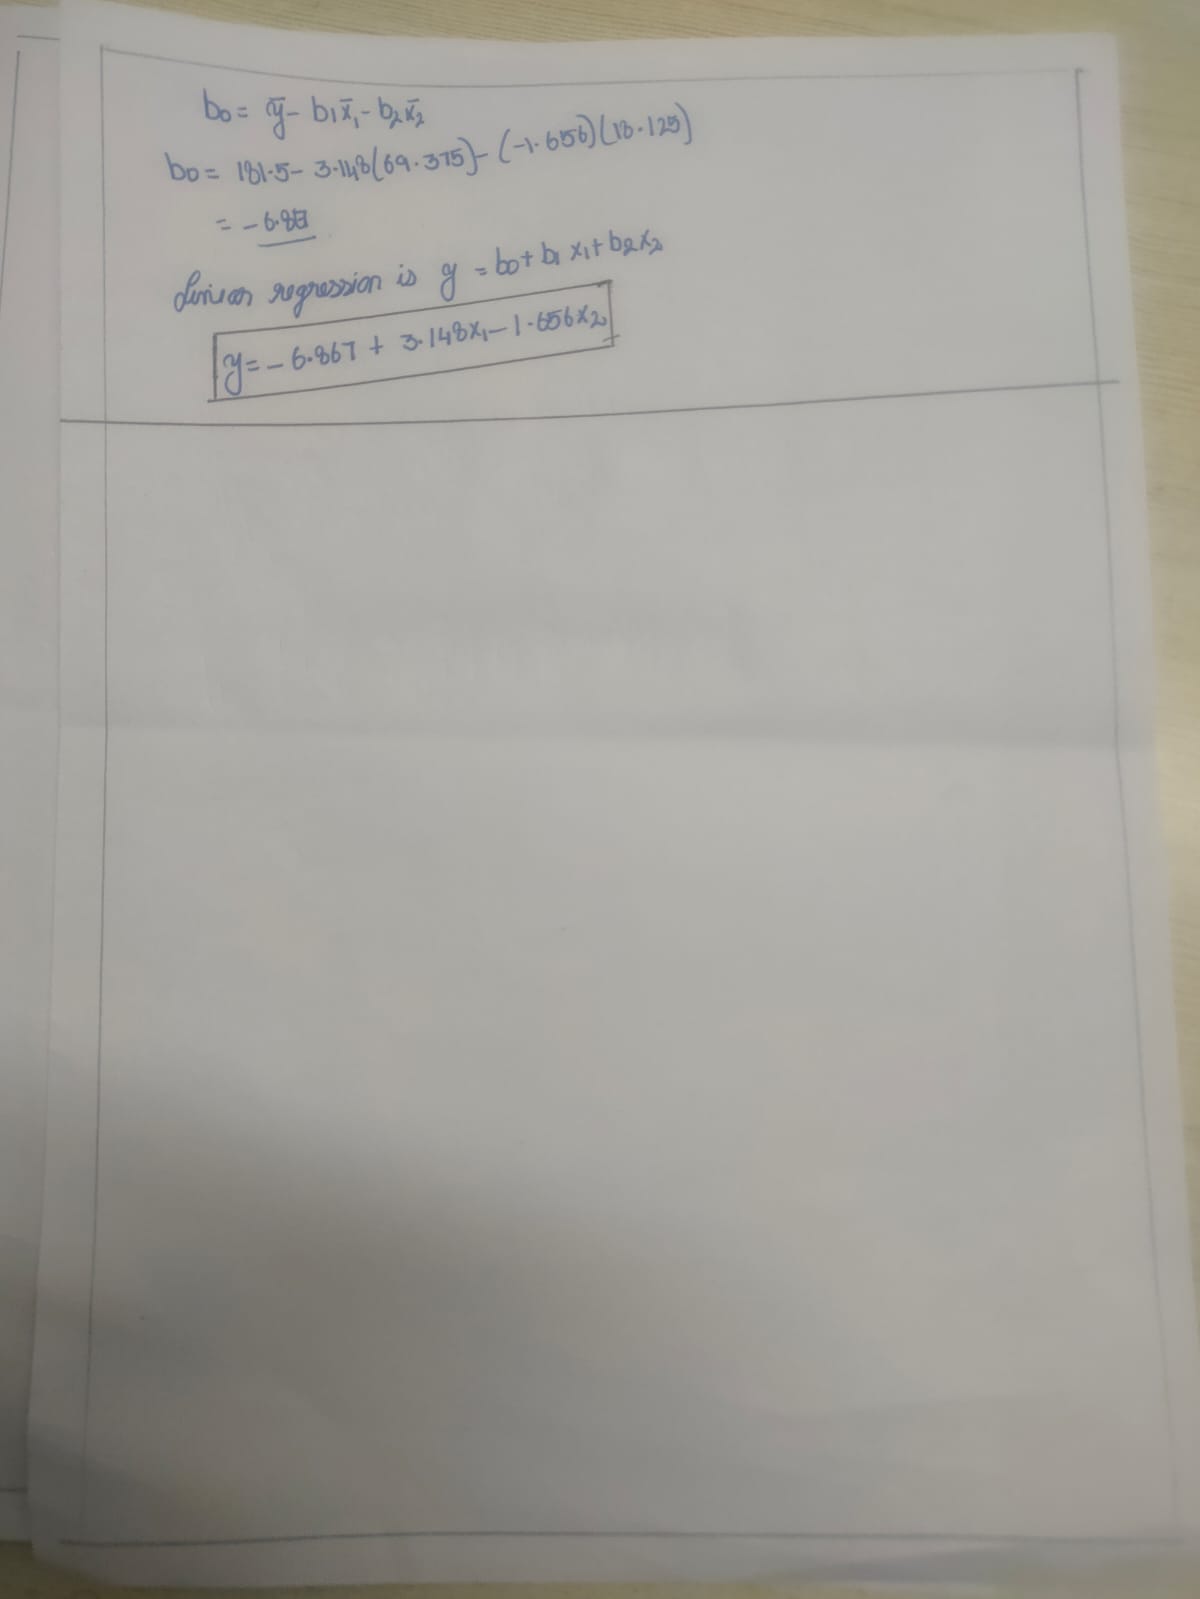 b₀ = ȳ - b₁x̄₁ - b₂x̄₂
b₀ = 181.5 - 3.148(69.375) - (-1.656)(18.125)
= -6.867
Linear regression is y = b₀ + b₁x₁ + b₂x₂
y = -6.867 + 3.148x₁ - 1.656x₂